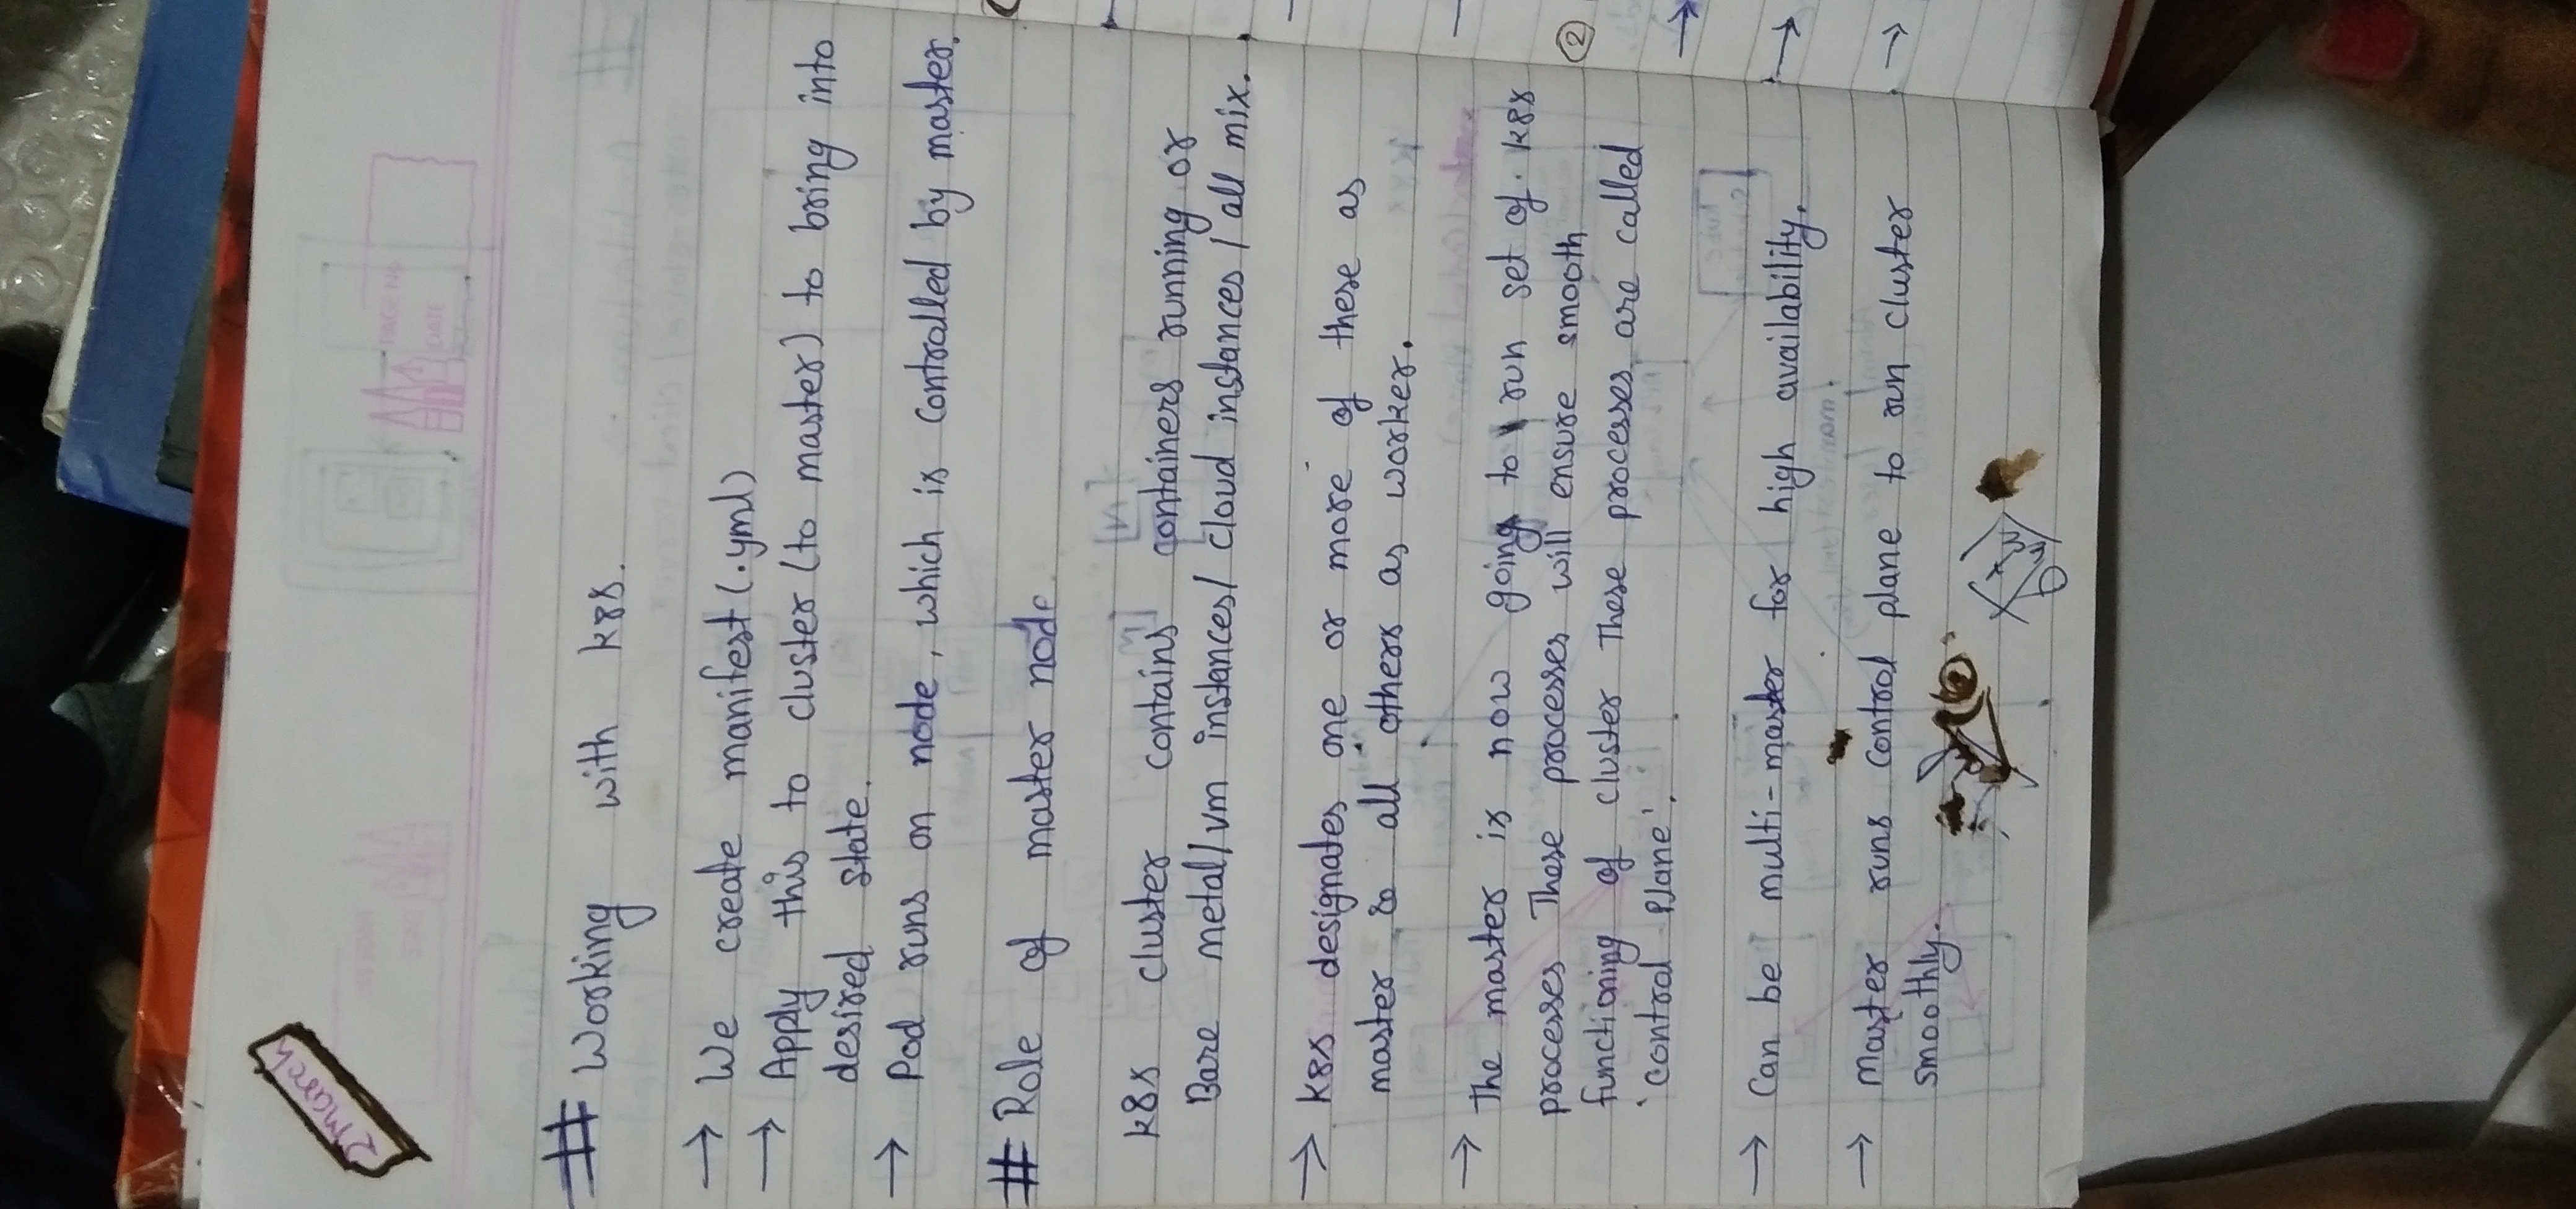 2 March
PAGE NO.
DATE
# Working with k8s.
→ We create manifest (.yml)
→ Apply this to cluster (to master) to bring into
desired state.
→ Pod runs on node, which is controlled by master.
# Role of master node
k8s cluster contains containers running or
Bare metal/vm instances/ cloud instances / all mix.
→ k8s designates one or more of these as
master & all others as worker.
→ The master is now going to run set of k8s
processes These processes will ensure smooth
functioning of cluster These processes are called
'control Plane'.
→ Can be multi-master for high availability.
→ Master runs control plane to run cluster
smoothly.
②